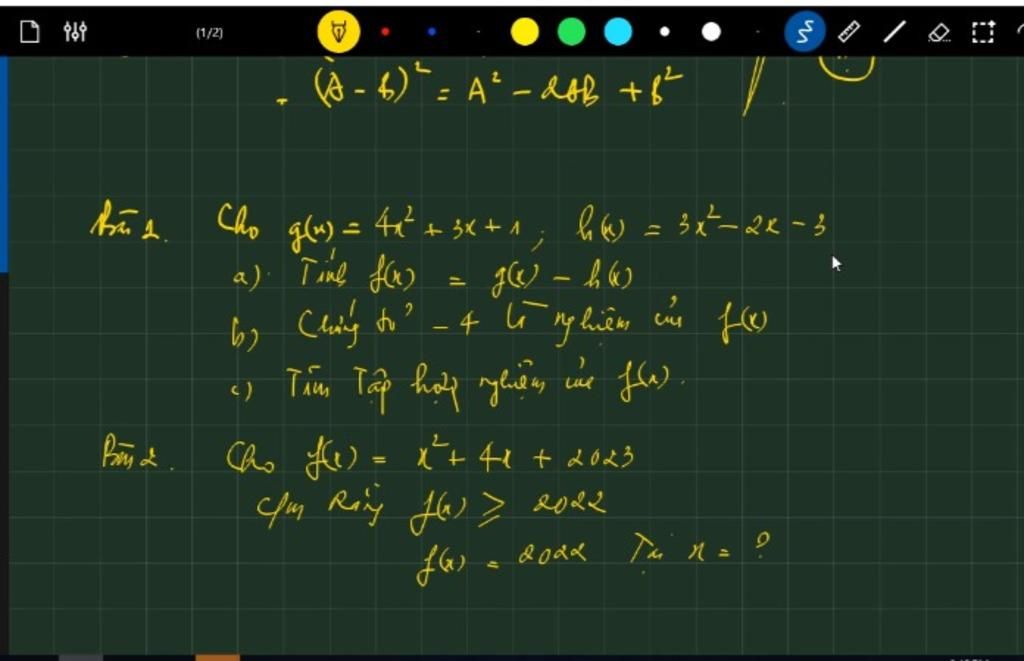 (1/2)
. (A - B)² = A² - 2AB + B²
Bài 1. Cho g(x) = 4x² + 3x + 1 ; h(x) = 3x² - 2x - 3
a). Tính f(x) = g(x) - h(x)
b) Chứng tỏ -4 là nghiệm của f(x)
c) Tìm Tập hợp nghiệm của f(x).
Bài 2. Cho f(x) = x² + 4x + 2023
Rằng f(x) ≥ 2022
f(x) = 2022 Tại x = ?